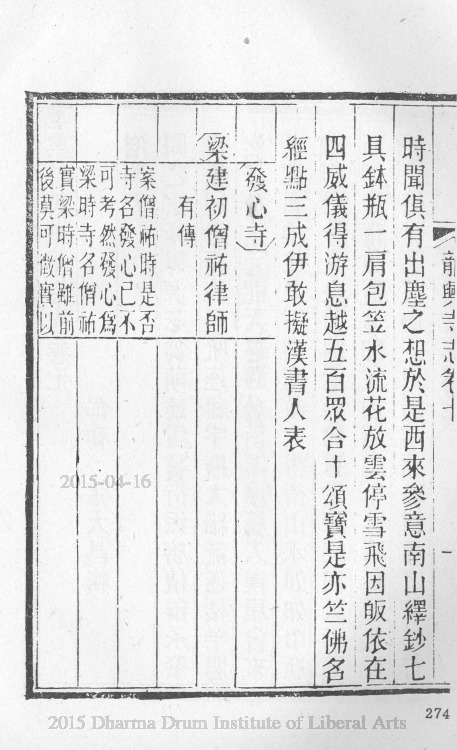 龍興寺志卷十 一
時聞俱有出塵之想於是西來參意南山繹鈔七
具鉢瓶一肩包笠水流花放雲停雪飛因皈依在
四威儀得游息越五百眾合十頌寶是亦竺佛名
經點三成伊敢擬漢書人表
發心寺
梁建初僧祐律師
有傳
案僧祐時是否
寺名發心已不
可考然發心爲
梁時寺名僧祐
實梁時僧雖前
後莫可徵實以
2015-04-16
274
2015 Dharma Drum Institute of Liberal Arts